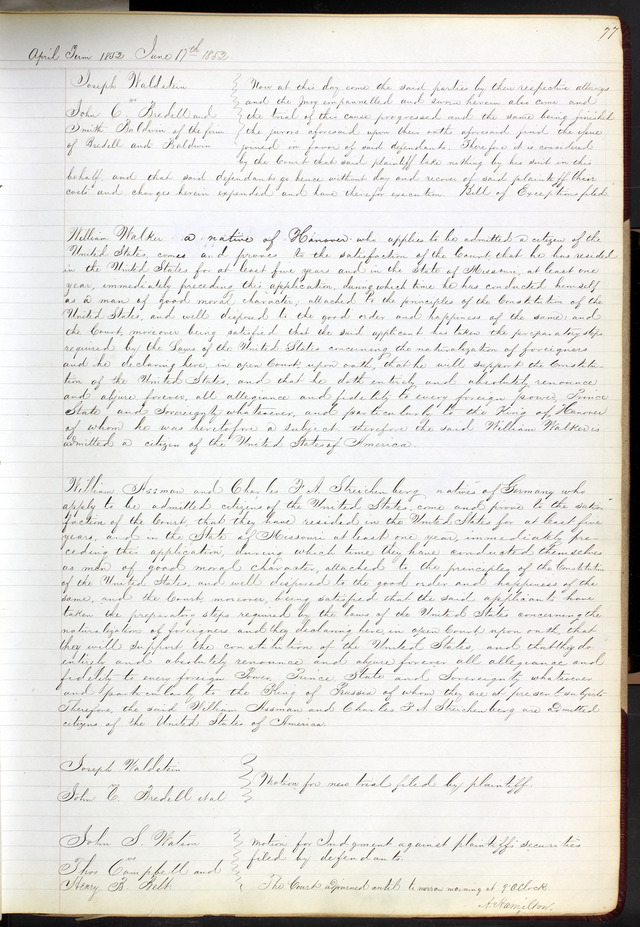 77
April Term 1852 June 17th 1852
Joseph Waldstein } Now at this day come the said parties by their respective attorneys
vs } and the Jury impannelled and sworn herein also come and
John C. Bredell and } the trial of this cause progressed and the same being finished
Smith Baldwin of the firm } the jurors aforesaid upon their oaths aforesaid find the issue
of Bredell and Baldwin } joined in favor of said defendants. Therefore it is considered
by the Court that said plaintiff take nothing by his suit in this
behalf, and that said defendants go hence without day and recover of said plaintiff their
costs and charges herein expended and have therefor execution. Bill of Exceptions filed.
William Walker a native of Hanover who applies to be admitted a citizen of the
United States, comes and proves to the satisfaction of the Court that he has resided
in the United States for at least five years and in the State of Missouri, at least one
year, immediately preceding this application, during which time he has conducted himself
as a man of good moral character, attached to the principles of the Constitution of the
United States, and well disposed to the good order and happiness of the same: and
the Court, moreover being satisfied that the said applicant has taken the preparatory steps
required by the Laws of the United States concerning the naturalization of foreigners
and he declaring here, in open Court, upon oath, that he will support the Constitu-
tion of the United States, and that he doth entirely and absolutely renounce
and abjure forever, all allegiance and fidelity to every foreign power, Prince
State and Sovereignty whatsoever, and particularly to the King of Hanover
of whom he was heretofore a subject therefore the said William Walker is
admitted a citizen of the United States of America.
William Assman and Charles F. A. Streichenberg natives of Germany who
apply to be admitted citizens of the United States, come and prove to the satis-
faction of the Court, that they have resided in the United States for at least five
years, and in the State of Missouri at least one year, immediately pre-
ceding this application, during which time they have conducted themselves
as men of good moral character, attached to the principles of the Constitution
of the United States, and well disposed to the good order and happiness of the
same, and the Court, moreover, being satisfied that the said applicants have
taken the preparatory steps required by the laws of the United States concerning the
naturalization of foreigners and they declaring here, in open Court upon oath, that
they will support the constitution of the United States, and that they do
entirely and absolutely renounce and abjure forever all allegiance and
fidelity to every foreign Power, Prince State and Sovereignty whatsoever
and particularly to the King of Prussia of whom they are at present subjects
Therefore, the said William Assman and Charles F. A. Streichenberg are admitted
citizens of the United States of America.
Joseph Waldstein
vs } Motion for new trial filed by plaintiff.
John C. Bredell et al
John S. Watson } Motion for Judgment against plaintiff's securities
vs } filed by defendants.
Thos Campbell and
Henry B. Belt } The Court adjourned until to morrow morning at 9 O'Clock.
A. Hamilton.